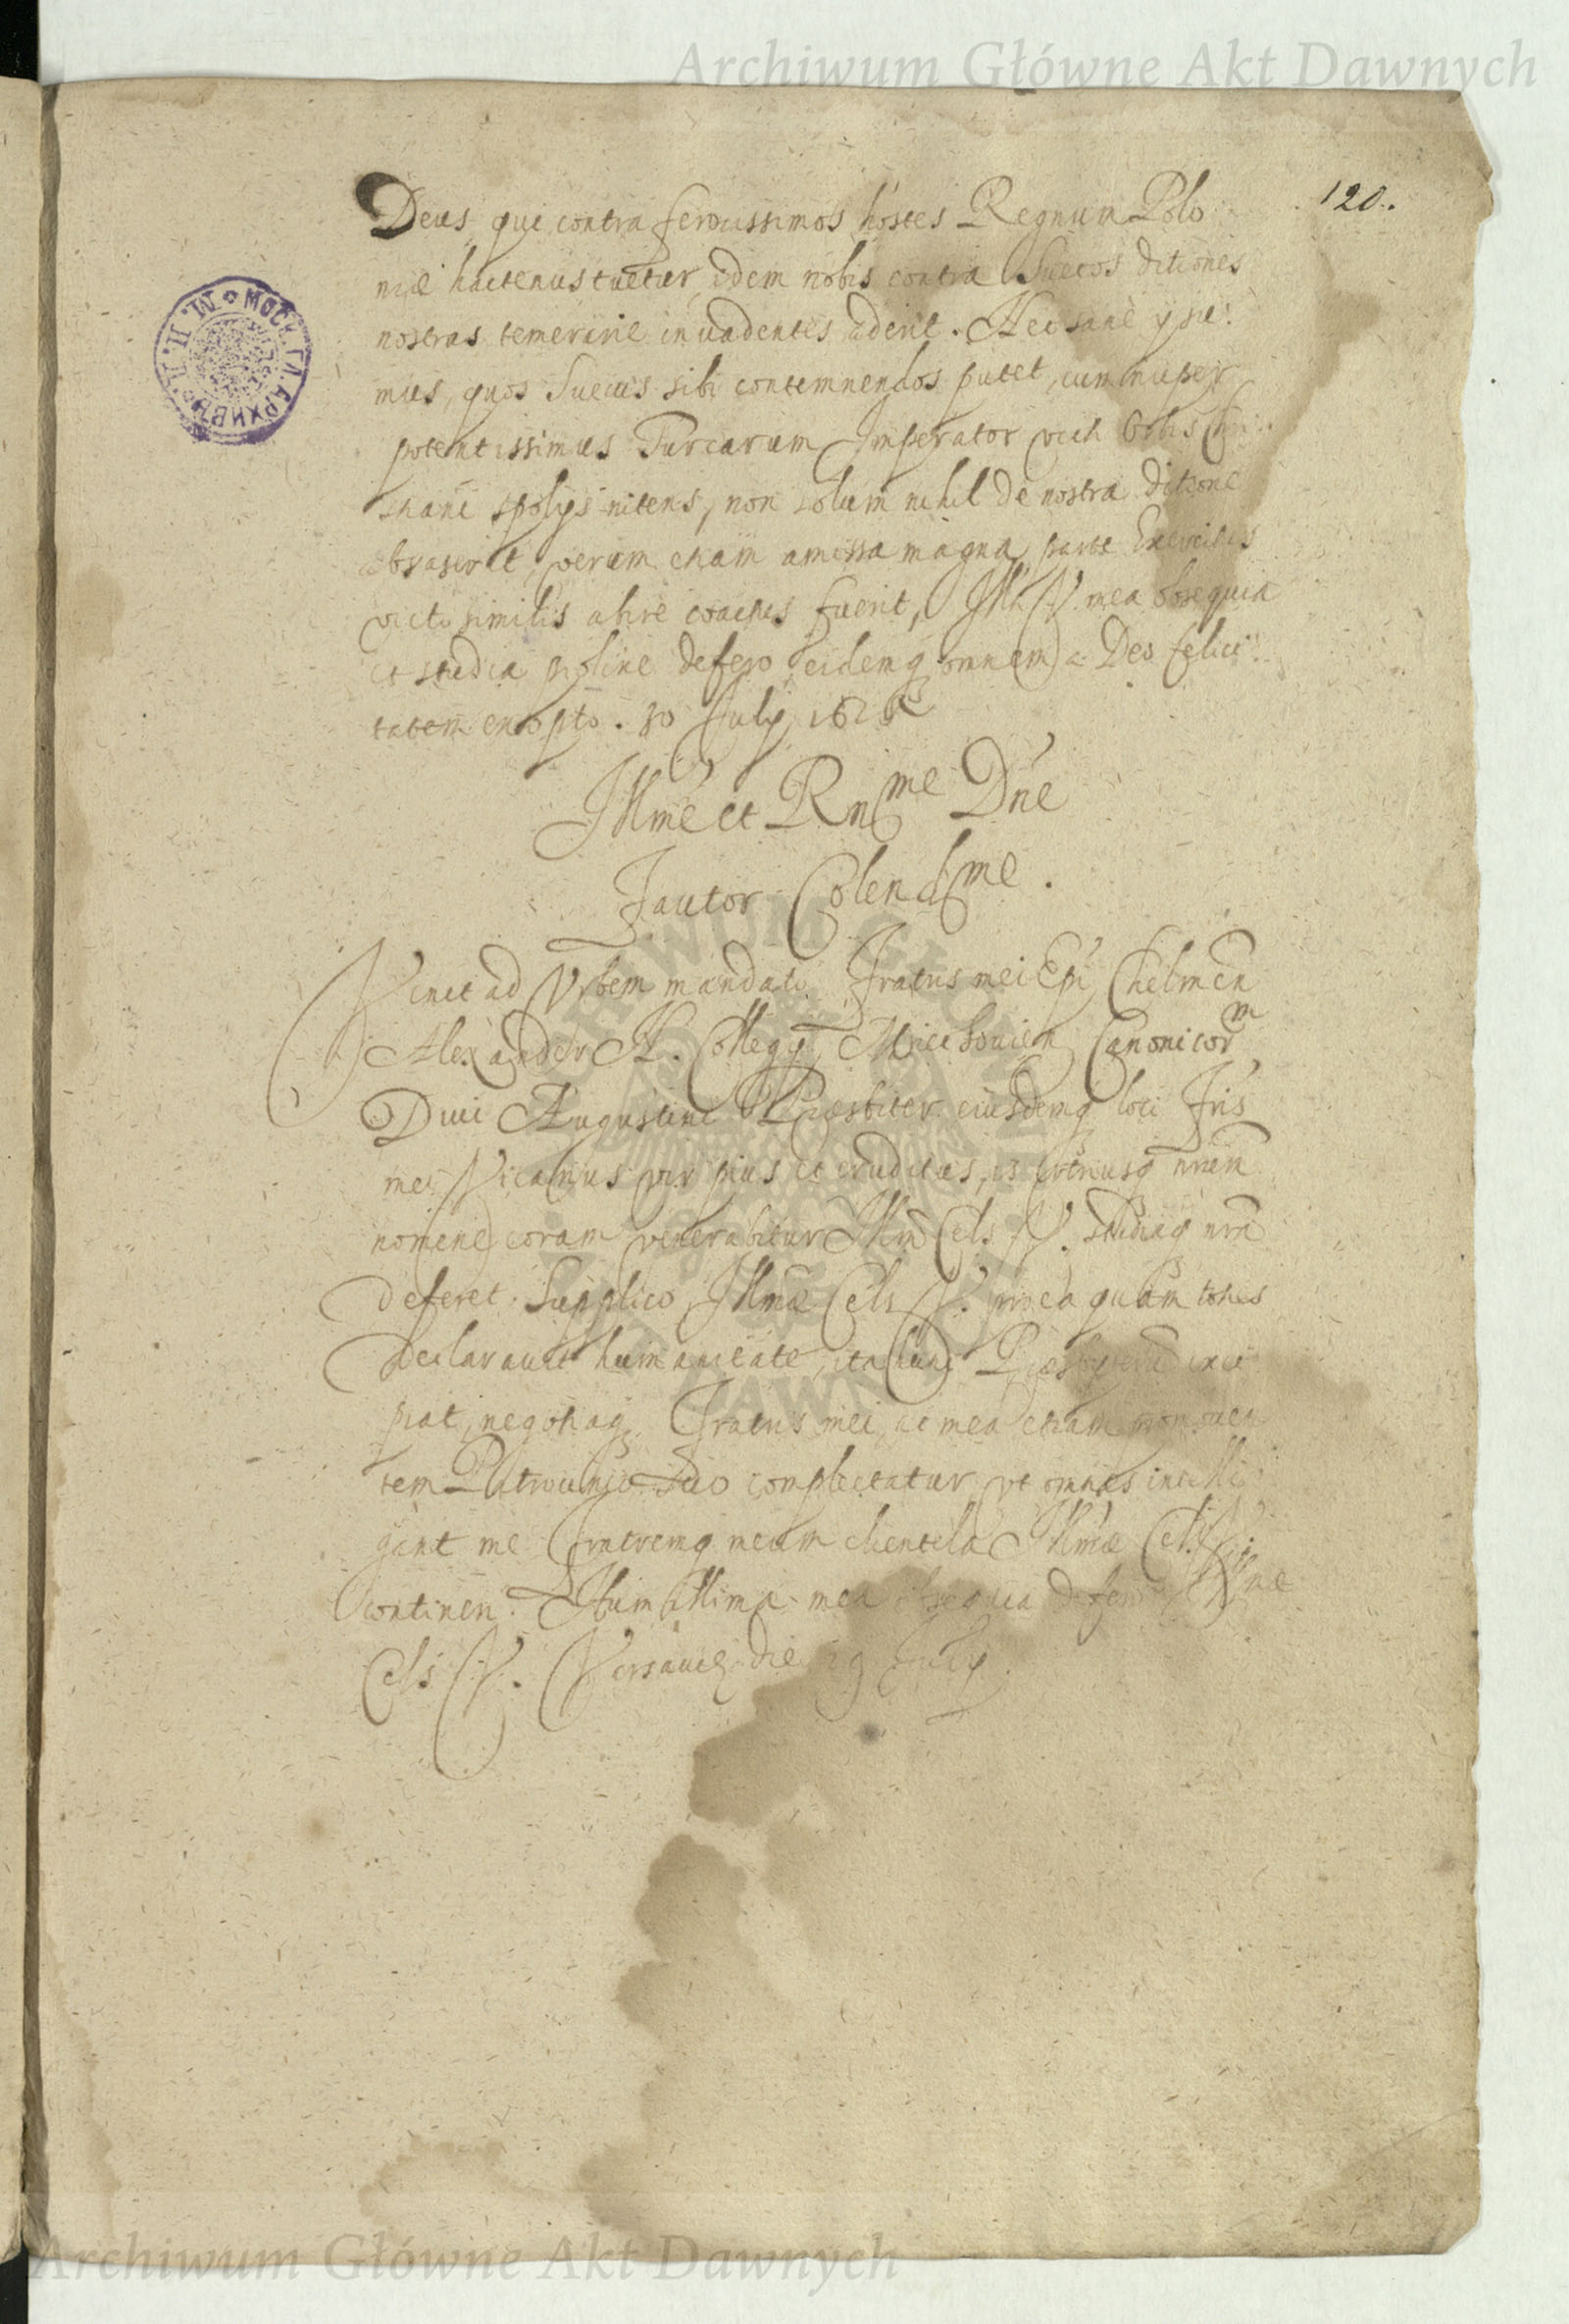 Archiwum Główne Akt Dawnych
120.
Deus, qui contra ferocissimos hostes Regnum Polo
niæ hactenus tuetur, idem nobis contra Suecos ditiones
nostras temerarie invadentes aderit. Nec sane ij su:
mus, quos Suecus sibi contemnendos putet, cum nuper
potentissimus Turcarum Imperator victi Orbis
spolijs nitens, non solum nihil de nostra ditione
abraserit, verum etiam amissa magna parte Exercitus
victo similis abire coactus fuerit, Illi V. mea obsequia
et studia prolixe defero eidemq omnem a Deo felici:
tatem exopto. 30 July 162
Illme et Rnme Dne
Fautor Colendme.
Venit ad Vrbem mandato Fratris mei Epi Chelmen
Alexander Collegij Miechovien Canonicorm
Divi Augustini Præsbiter eiusdemq loci Fris
mei Vicarius vir pius et eruditus, is utriusq nrm
nomine coram venerabitur Illm Cels V. studiaq nra
deferet. Supplico Illmæ Cels V. pro ea quam toties
declaravit humanitate, ita hunc Præsbyterum exci
piat, negotiaq Fratris mei, ac mea etiam
tem Patrocinio Suo complectatur, vt omnes intelli
gant me Fratremq meum clientela Illmæ Cels V.
contineri. Humillima mea obsequia defero Illmæ
Cels V. Varsaviæ die 29 July.
МОСК. ГЛ. АРХИВЪ
М. И. Д.
ARCHIWUM GŁÓWNE AKT DAWNYCH
Archiwum Główne Akt Dawnych